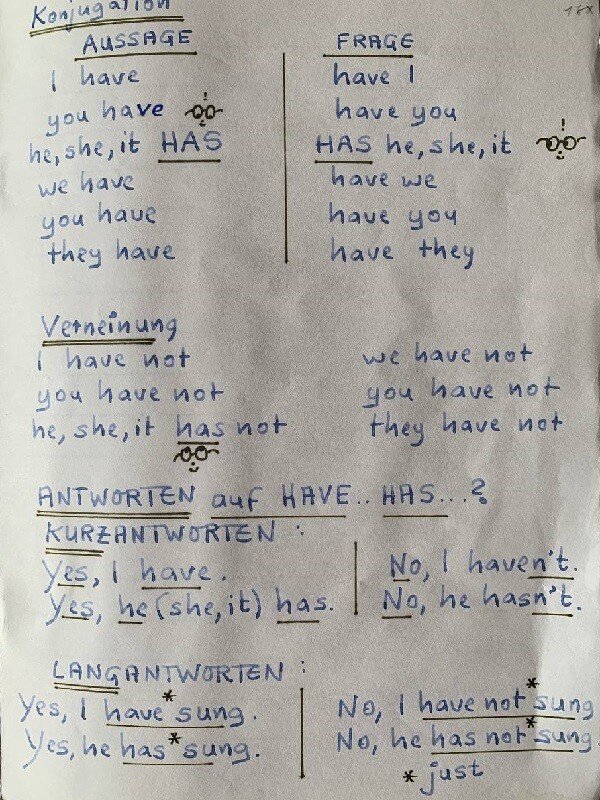 Konjugation
AUSSAGE
I have
you have
he, she, it HAS
we have
you have
they have
FRAGE
have I
have you
HAS he, she, it
have we
have you
have they
Verneinung
I have not
you have not
he, she, it has not
we have not
you have not
they have not
ANTWORTEN auf HAVE.. HAS...?
KURZANTWORTEN :
Yes, I have.
Yes, he (she, it) has.
No, I haven't.
No, he hasn't.
LANGANTWORTEN :
Yes, I have * sung.
Yes, he has * sung.
No, I have not * sung
No, he has not * sung.
* just